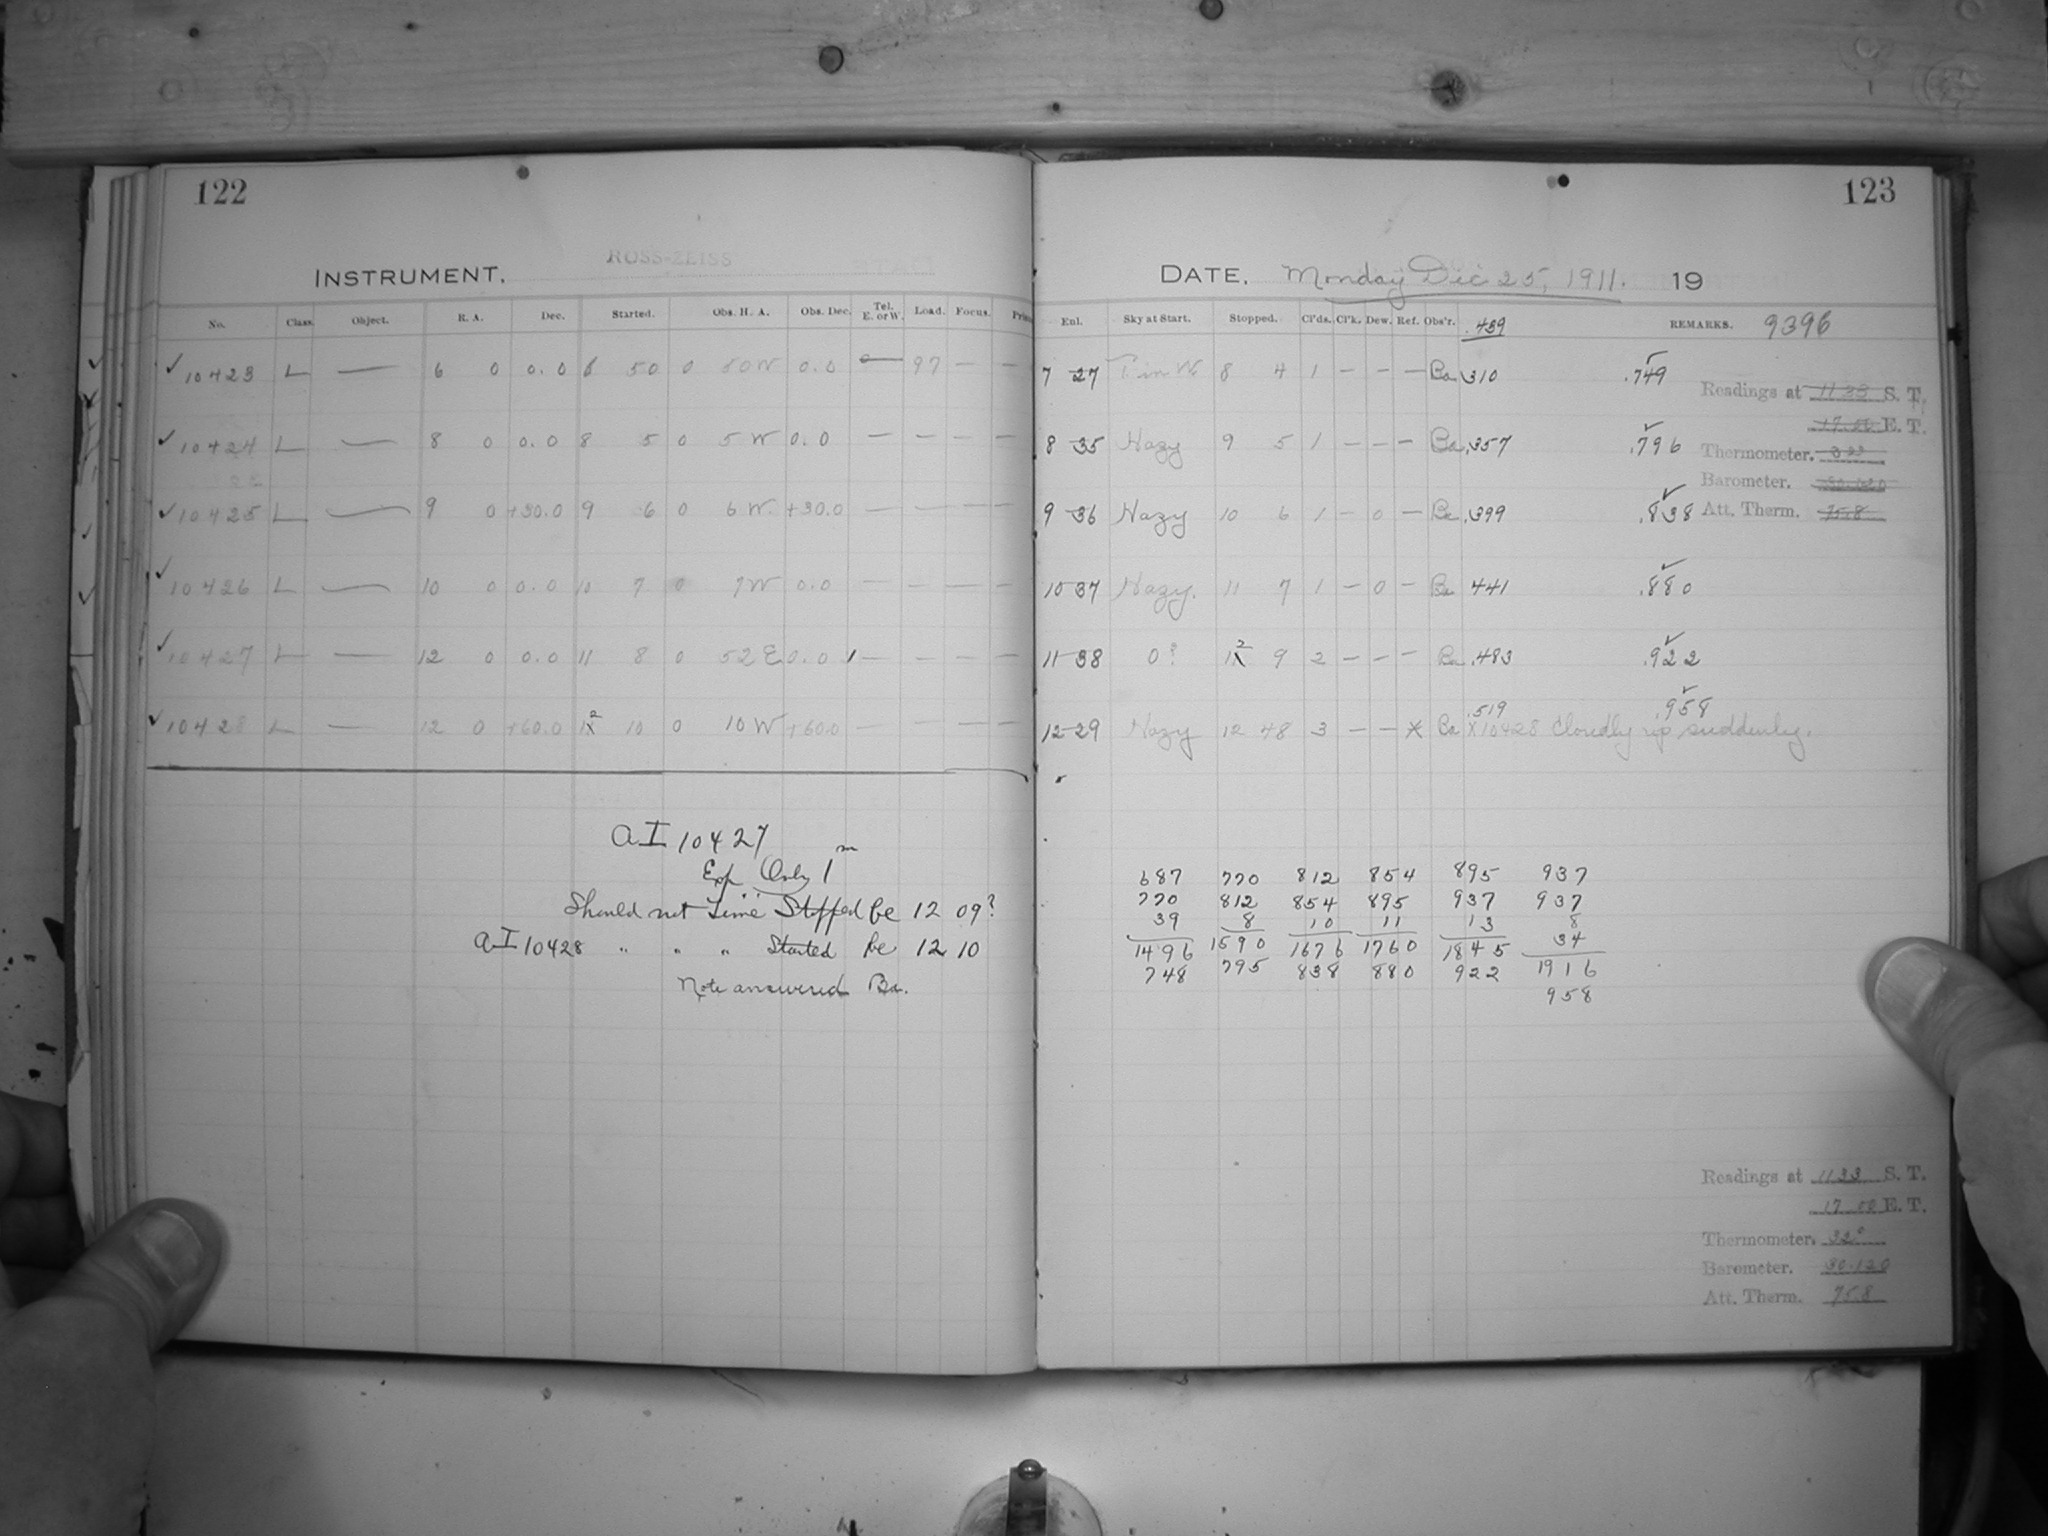 122
ROSS-ZEISS
INSTRUMENT.
No. Class. Object. R. A. Dec. Started. Obs. H. A. Obs. Dec. Tel. E. or W. Load. Focus.
✓ 10423 L — 6 0 0.0 6 50 0 50 W 0.0 — 97 — —
✓ 10424 L — 8 0 0.0 8 5 0 5 W 0.0 — — — —
✓ 10425 L — 9 0 +30.0 9 6 0 6 W. +30.0 — — — —
✓ 10426 L — 10 0 0.0 10 7 0 7 W 0.0 — — — —
✓ 10427 L — 12 0 0.0 11 8 0 52 E 0.0 — — — —
✓ 10428 L — 12 0 +60.0 12 10 0 10 W +60.0 — — — —
AI 10427
Exp Only 1 m
Should not Time Stopped be 12 09?
AI 10428 " " " Started be 12 10
Note answered Ba.
123
DATE. Monday Dec 25, 1911. 19
Eul. Sky at Start. Stopped. Cl'ds. Cl'k. Dew. Ref. Obs'r. .439 REMARKS. 9396
7 27 8 4 1 — — — Ba .310 .749
8 35 Hazy 9 5 1 — — — Ba .357 .796
9 36 Hazy 10 6 1 — 0 — Ba .399 .838
10 37 Hazy. 11 7 1 — 0 — Ba 441 .880
11 38 0? 12 9 2 — — — Ba .483 .922
.519 .958
12 29 Hazy 12 48 3 — — * Ba X10428 Cloudly up suddenly.
Readings at 11 33 S. T.
17.00 E. T.
Thermometer.
Barometer. 30.120
Att. Therm. 75.8
687 770 812 854 895 937
770 812 854 895 937 937
39 8 10 11 13 8
34
1496 1590 1676 1760 1845 1916
748 795 838 880 922 958
Readings at 11 33 S. T.
17.00 E. T.
Thermometer. 32°
Barometer. 30.120
Att. Therm. 75.8